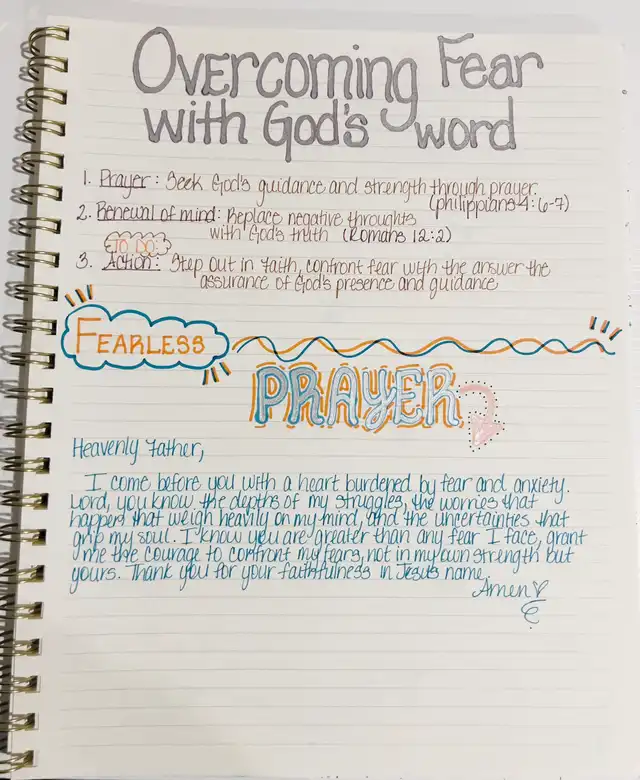 Overcoming Fear
with God's word
1. Prayer: Seek God's guidance and strength through prayer.
(philippians 4:6-7)
2. Renewal of mind: Replace negative thoughts
with God's truth (Romans 12:2)
TO DO:
3. Action: Step out in faith, confront fear with the answer the
assurance of God's presence and guidance
FEARLESS
PRAYER
Heavenly Father,
I come before you with a heart burdened by fear and anxiety.
Lord, you know the depths of my struggles, the worries that
happens that weigh heavily on my mind, and the uncertainties that
grip my soul. I know you are greater than any fear I face, grant
me the courage to confront my fears, not in my own strength but
yours. Thank you for your faithfulness in Jesus name.
Amen